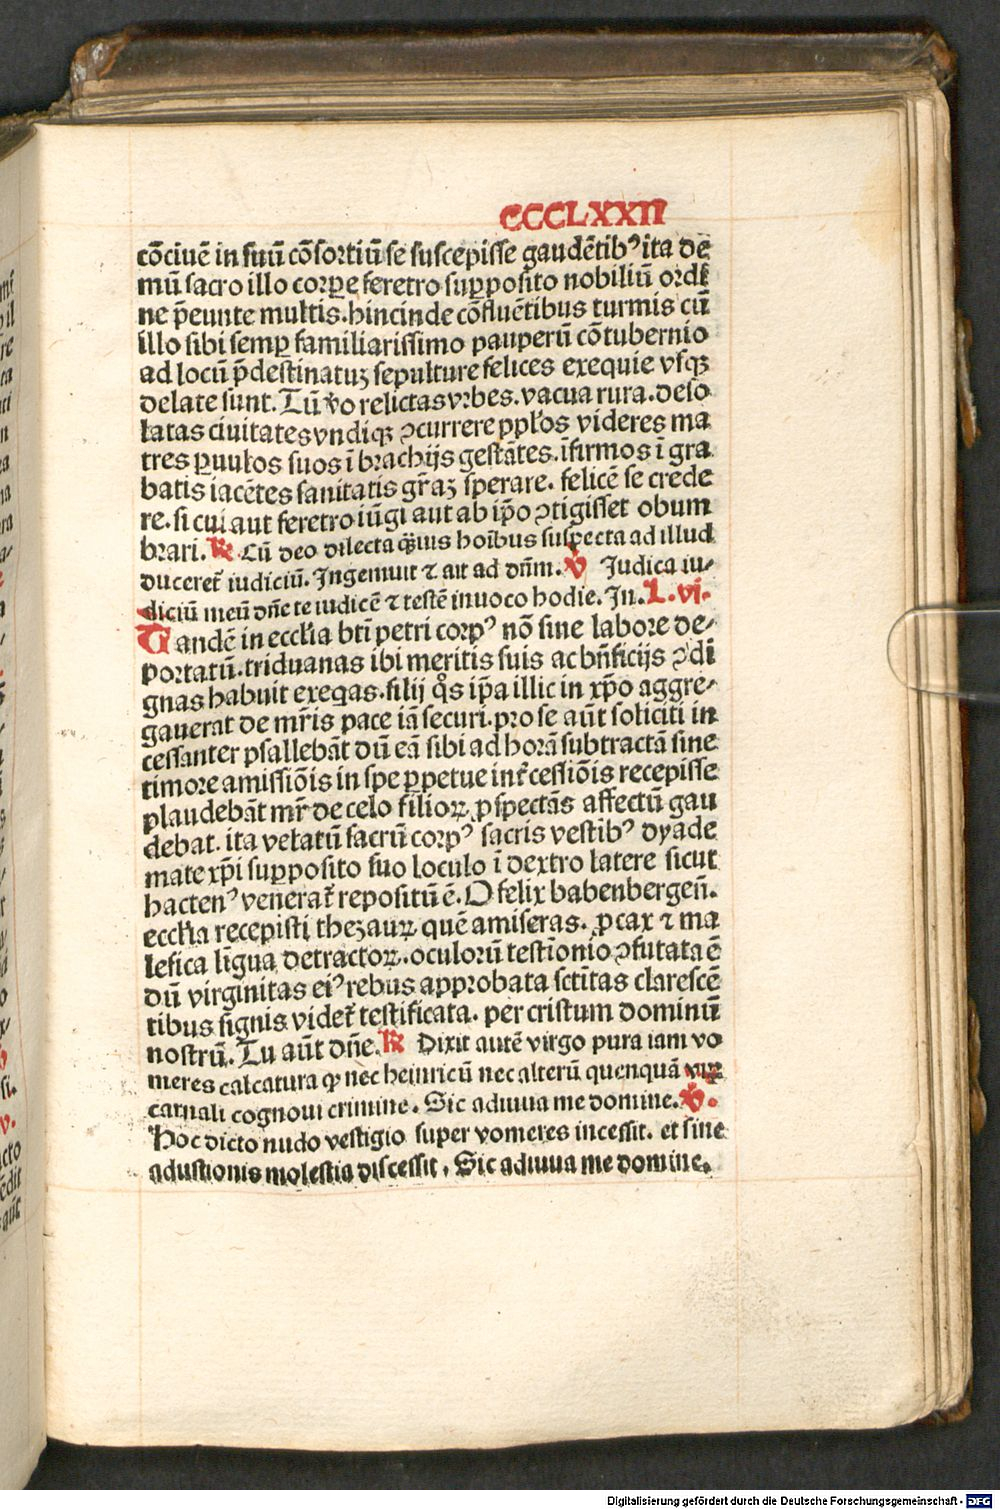 CCCLXXII
cōciuē in suū cōsortiū se suscepisse gaudētibꝰ ita de
mū sacro illo corpe feretro supposito nobiliū ordi
ne p̄eunte multis. hincinde cōfluētibus turmis cū
illo sibi semp familiarissimo pauperū cōtubernio
ad locū p̄destinatuꝫ sepulture felices exequie vsqꝫ
delate sunt. Tū v̓o relictas vrbes. vacua rura. deso
latas ciuitates vndiqꝫ ꝯcurrere ppl̓os videres ma
tres ꝑuulos suos ī brachijs gestātes. īfirmos ī gra
batis iacētes sanitatis gr̄aꝫ sperare. felicē se crede
re. si cui aut feretro iūgi aut ab ip̄o ꝯtigisset obum
brari. R̸ Cū deo dilecta q̄uis hoībus suspecta ad illud
duceret̉ iudiciū. Ingemuit ⁊ ait ad dn̄m. V̸ Judica iu-
diciū meū dn̄e te iudicē ⁊ testē inuoco hodie. In. L. vi.
Tandē in eccl̓ia bt̄i petri corpꝰ nō sine labore de-
portatū. triduanas ibi meritis suis ac bn̄ficijs ꝯdi
gnas habuit exeq̄as. filij q̊s ip̄a illic in xp̄o aggre-
gauerat de mr̄is pace iā securi. pro se aūt soliciti in
cessanter psallebāt dū eā sibi ad horā subtractā sine
timore amissiōis in spe ꝑpetue int̉cessiōis recepisse
plaudebāt mr̄ de celo filioꝝ ꝓspectās affectū gau
debat. ita velatū sacrū corpꝰ sacris vestibꝰ dyade
mate xp̄i supposito suo loculo ī dextro latere sicut
hactenꝰ venerat̉ repositū ē. O felix babenbergeñ.
eccl̓ia recepisti thezauꝝ quē amiseras. ꝓcax ⁊ ma
lefica līgua detractoꝝ. oculorū testīonio ꝯfutata ē
dū virginitas eiꝰ rebus approbata sctītas clarescē
tibus signis videt̉ testificata. per cristum dominū
nostrū. Tu aūt dn̄e. R̸ Dixit autē virgo pura iam vo
meres calcatura ꝙ nec heinricū nec alterū quenquā viꝝ
carnali cognoui crimine. Sic adiuua me domine. V̸.
Hoc dicto nudo vestigio super vomeres incessit. et sine
adustionis molestia discessit. Sic adiuua me domine.
Digitalisierung gefördert durch die Deutsche Forschungsgemeinschaft - DFG